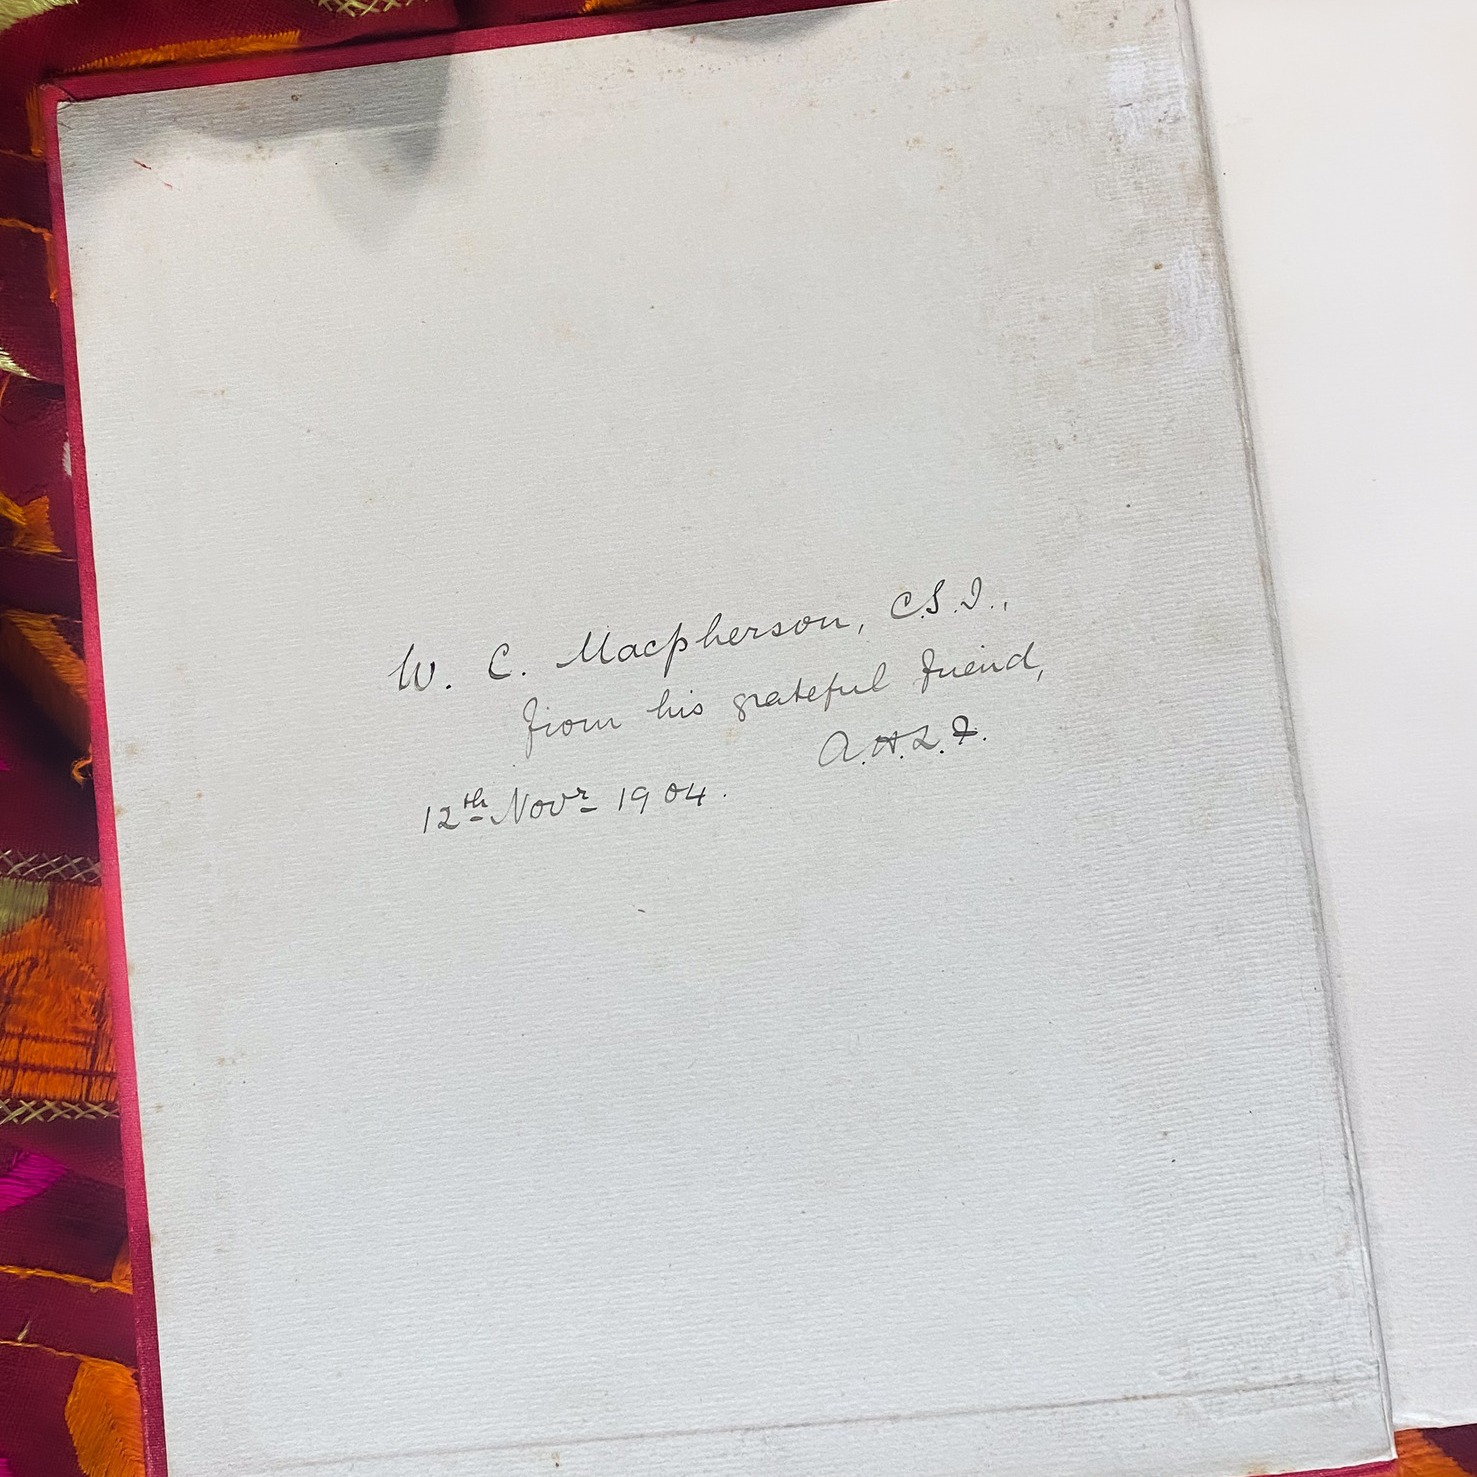 W. C. Macpherson, C.S.I.,
from his grateful friend,
A.H.L.F.
12th Novr 1904.